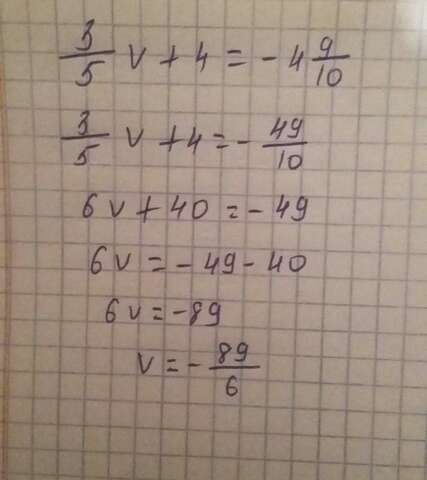 3/5 v + 4 = - 4 9/10
3/5 v + 4 = - 49/10
6v + 40 = - 49
6v = - 49 - 40
6v = -89
v = - 89/6